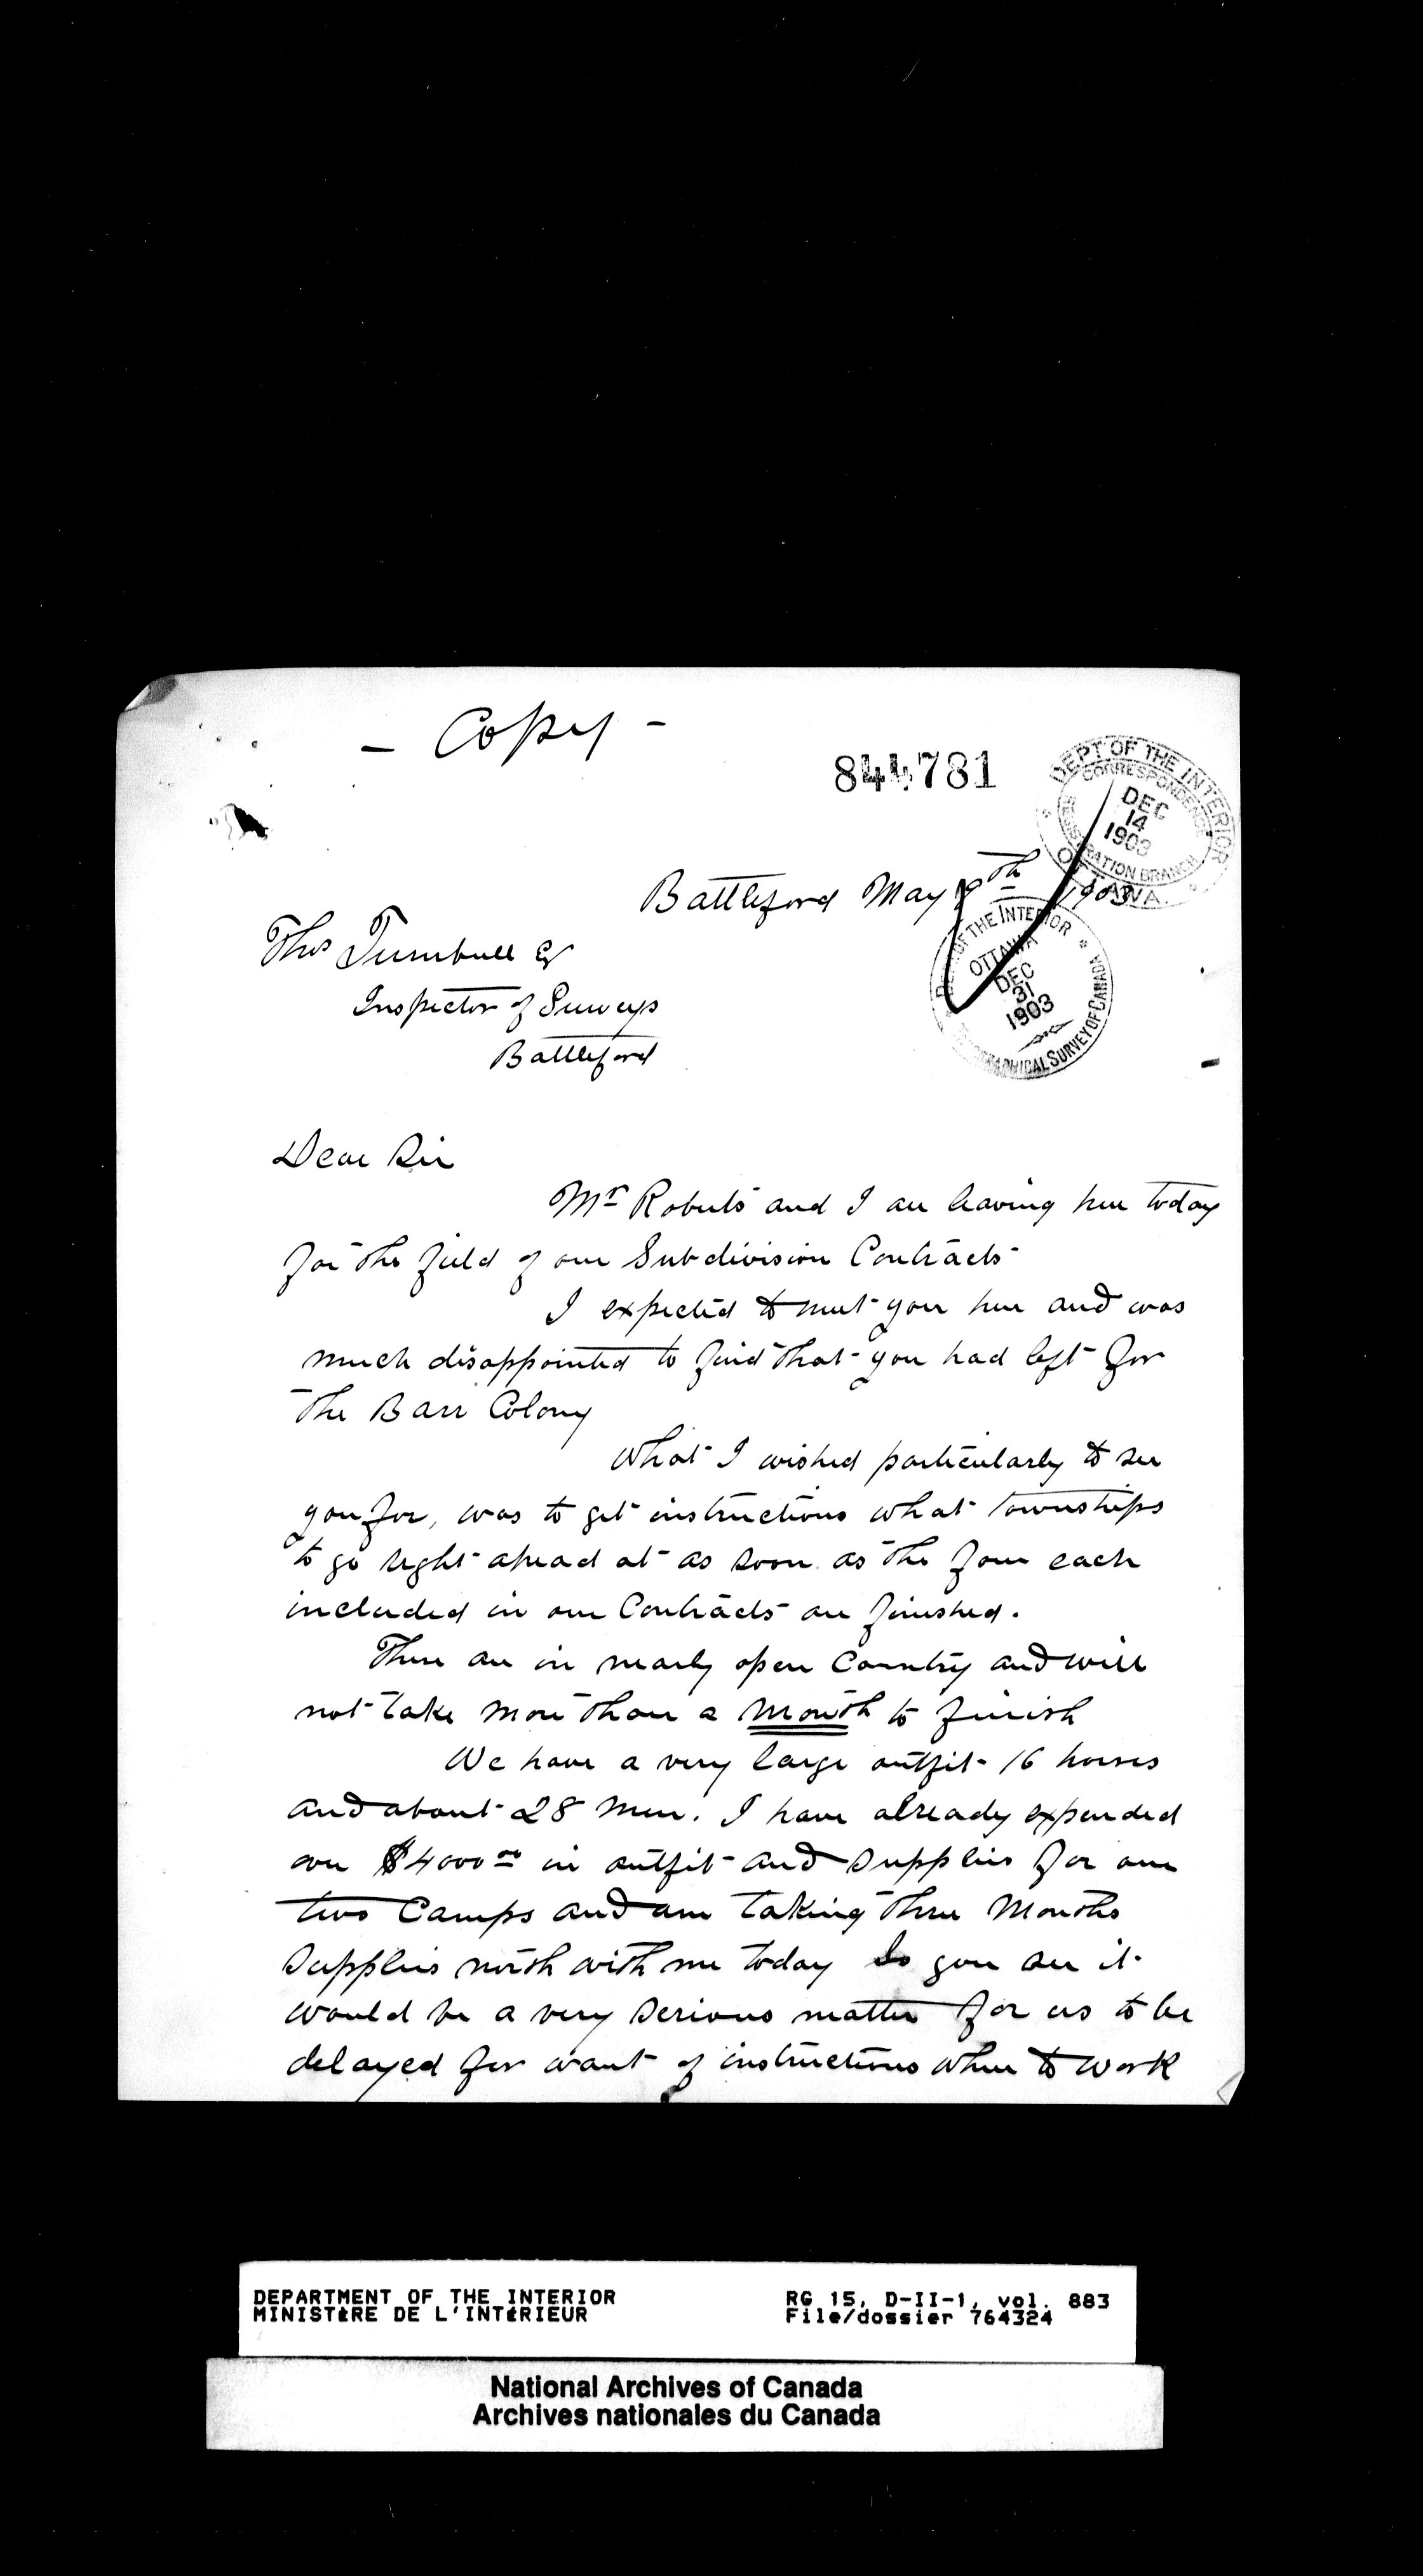 - Copy -
844781
DEPT OF THE INTERIOR
CORRESPONDENCE
DEC
14
1903
REGISTRATION BRANCH
OTTAWA
Battleford May 9th 1903
OF THE INTERIOR
OTTAWA
DEC
31
1903
GRAPHICAL SURVEY OF CANADA
Thos Turnbull Esq
Inspector of Surveys
Battleford
Dear Sir
Mr Roberts and I are leaving here today
for the field of our Subdivision Contracts
I expected to meet you here and was
much disappointed to find that you had left for
the Barr Colony
What I wished particularly to see
you for, was to get instructions what townships
to go right ahead at as soon as the four each
included in our Contracts are finished.
These are in nearly open Country and will
not take more than a month to finish
We have a very large outfit 16 horses
and about 28 men. I have already expended
over $4000 00 in outfit and supplies for our
two Camps and am taking three Months
supplies north with me today So you see it
would be a very serious matter for us to be
delayed for want of instructions where to work
DEPARTMENT OF THE INTERIOR
MINISTÈRE DE L'INTÉRIEUR
RG 15, D-II-1, vol. 883
File/dossier 764324
National Archives of Canada
Archives nationales du Canada